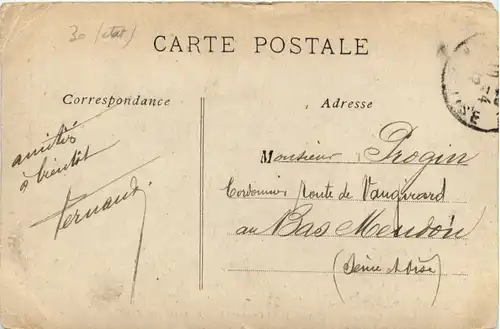 30 (état)
CARTE POSTALE
Correspondance
Adresse
amitiés
à bientôt
Fernand.
Monsieur Progin
Cordonnier Route de Vaugirard
au Bas Meudon
(Seine et Oise)